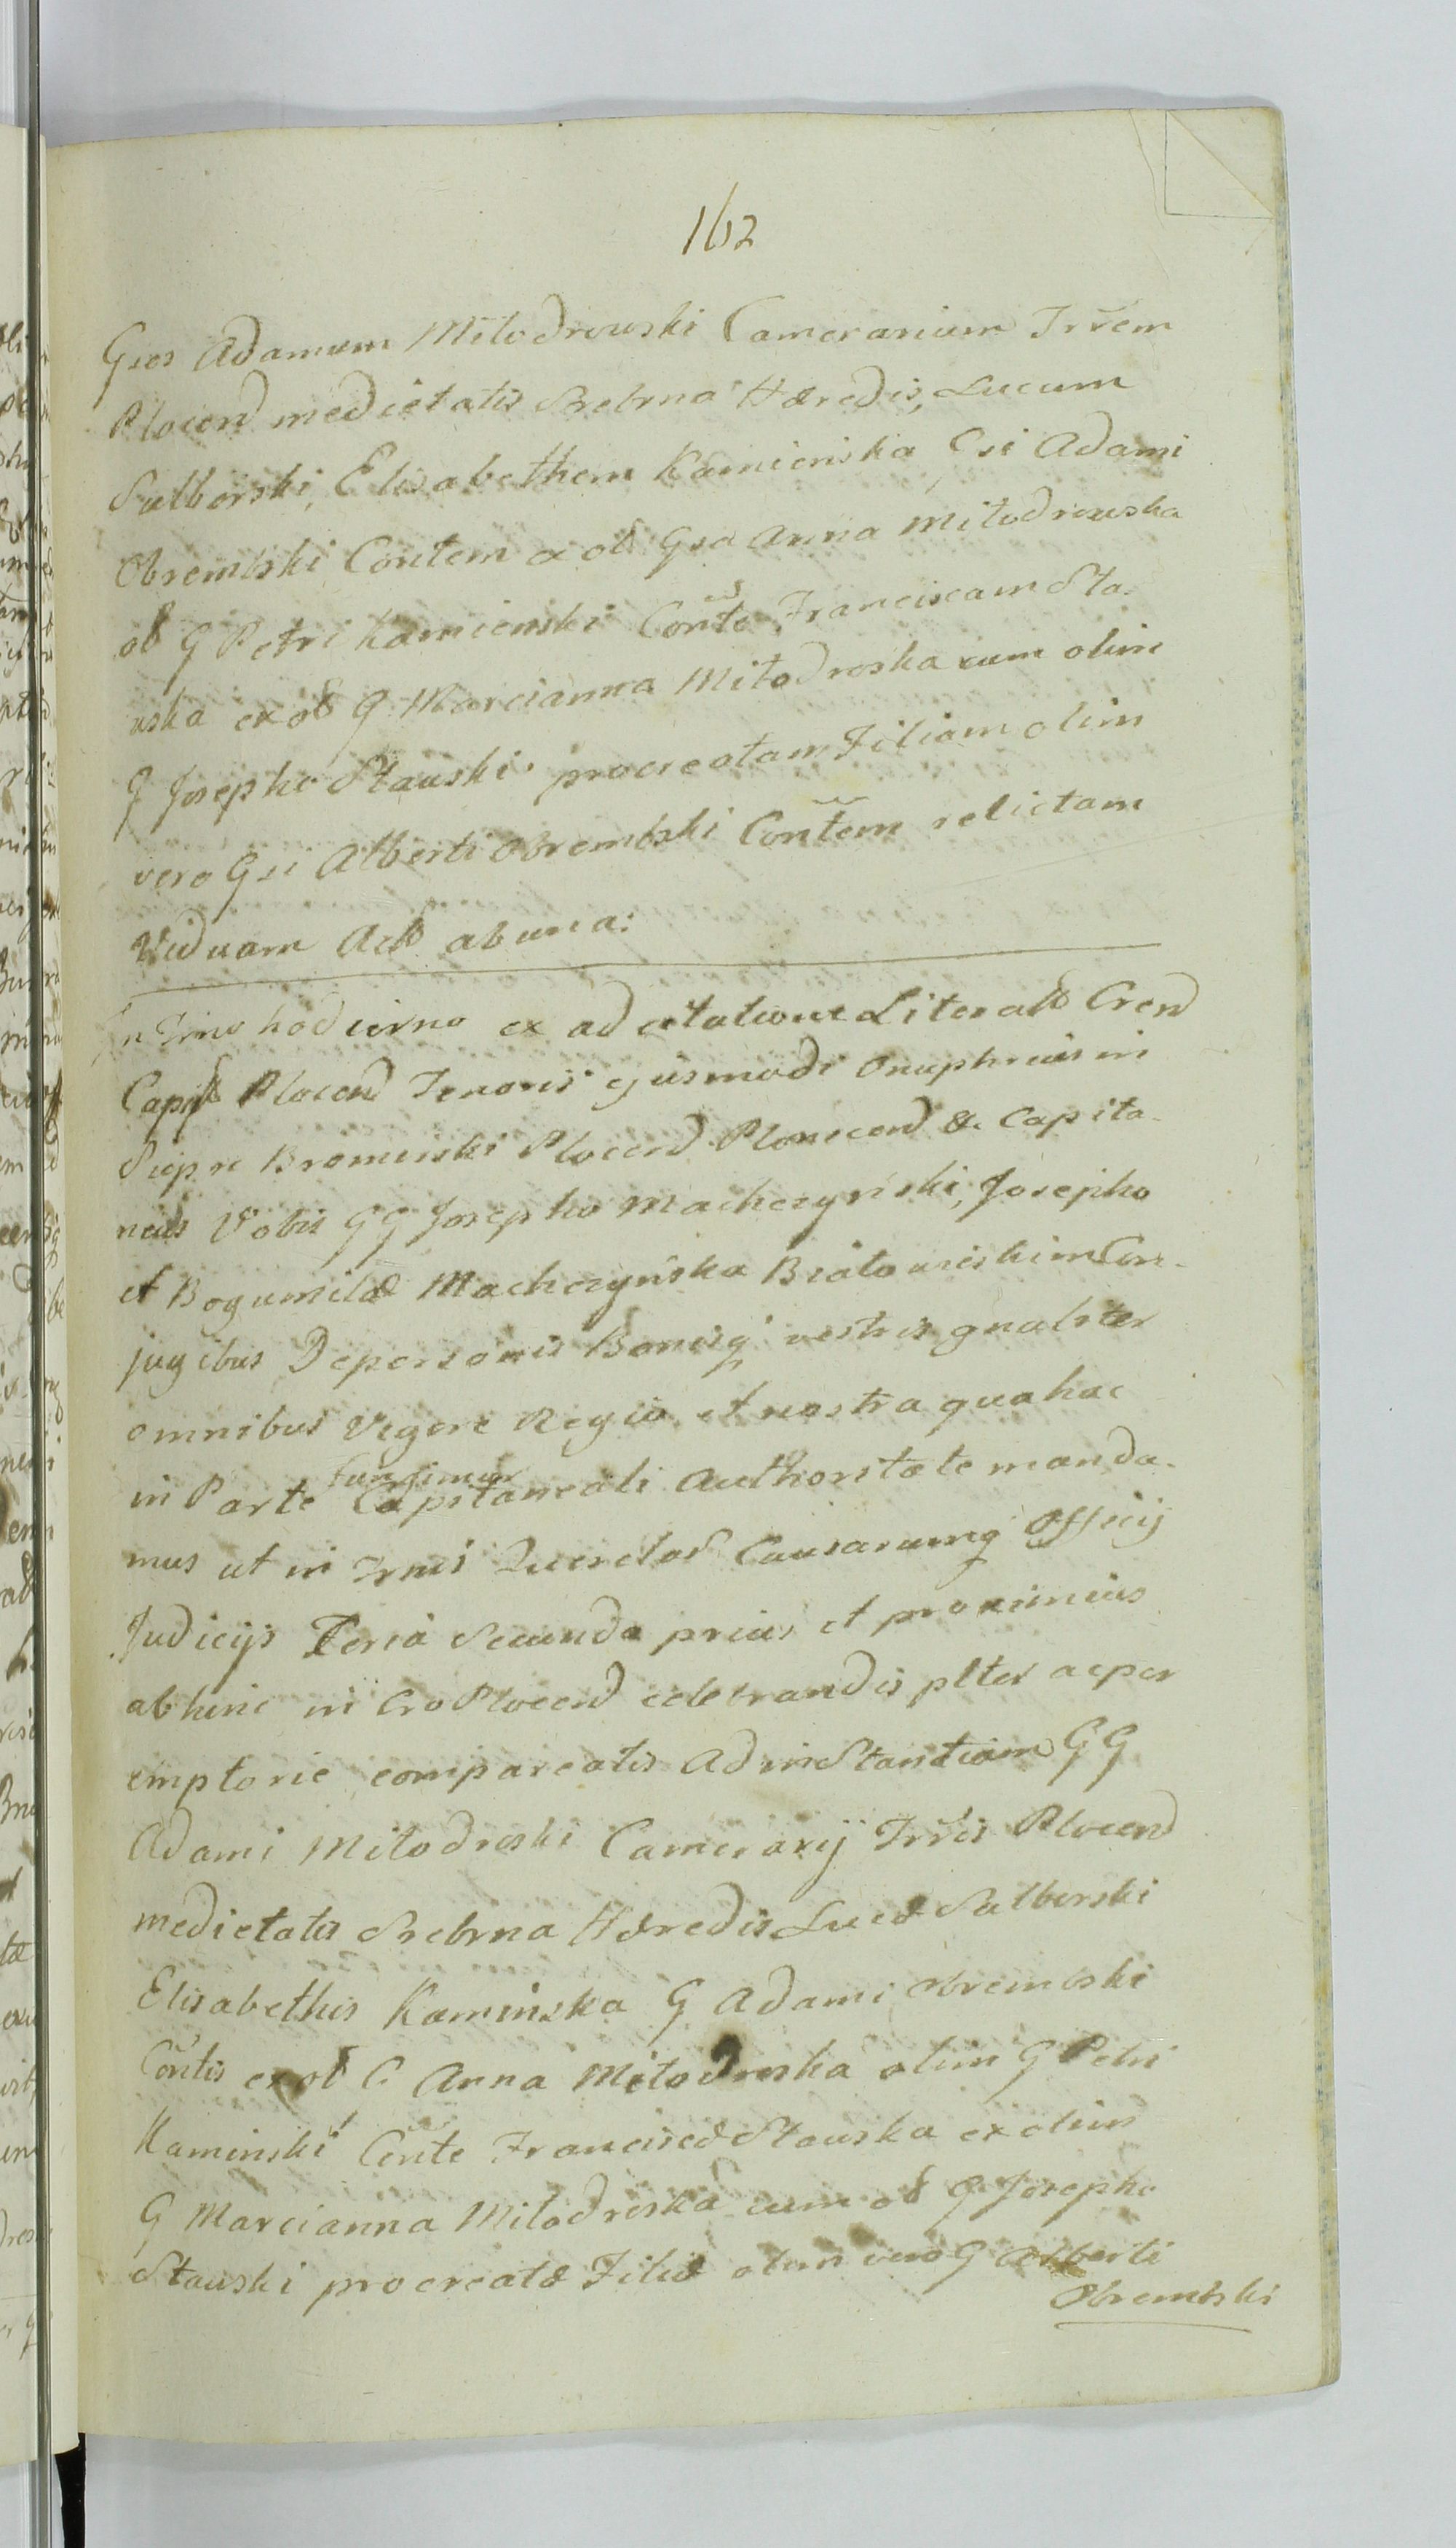 162
Gsos Adamum Miłodrowski Camerarium Trrem
Plocen medietatis Srebrna Hæredis, Lucum
Sulborski, Elisabethem Kamienska Gsi Adami
Obrembski Contem ex ol Gsa Anna Miłodrowska
ol G Petri Kamienski Conte Franciscam Sta-
uska ex ol G Marcianna Miłodroska cum olim
G Josepho Stauski procreatam Filiam olim
vero Gsi Alberti Obrembski Contem relictam
Viduam Act ab una:
In Trno hodierno ex adcitatione Literali Cren
Capit Plocen Tenoris ejusmodi Onuphrius in
Siepre Bromirski Plocen Plonscen &c Capita-
neus Vobis GG Josepho Machczyński, Josepho
et Bogumilæ Machczyńska Białowieskim Con-
jugibus De personis Bonisq vestris gnaliter
omnibus Vigore Regia et nostra qua hac
in Parte fungimur Capitaneali Authoritate manda-
mus ut in Trnis Querelar Causarumq Officij
Judicijs Feria Secunda prius et proximius
abhinc in Cro Plocen celebrandis plter ac per
emptorie compareatis Ad instantiam GG
Adami Miłodroski Camerarij Trris Plocen
medietatis Srebrna Hæredis Lucæ Sulborski
Elisabethis Kaminska G Adami Obrembski
Contis ex ol G Anna Miłodroska olim G Petri
Kaminski Conte Franciscæ Stauska ex olim
G Marcianna Miłodroska cum ol G Josepho
Stauski procreatæ Filiæ olim vero G Alberti
Obrembski